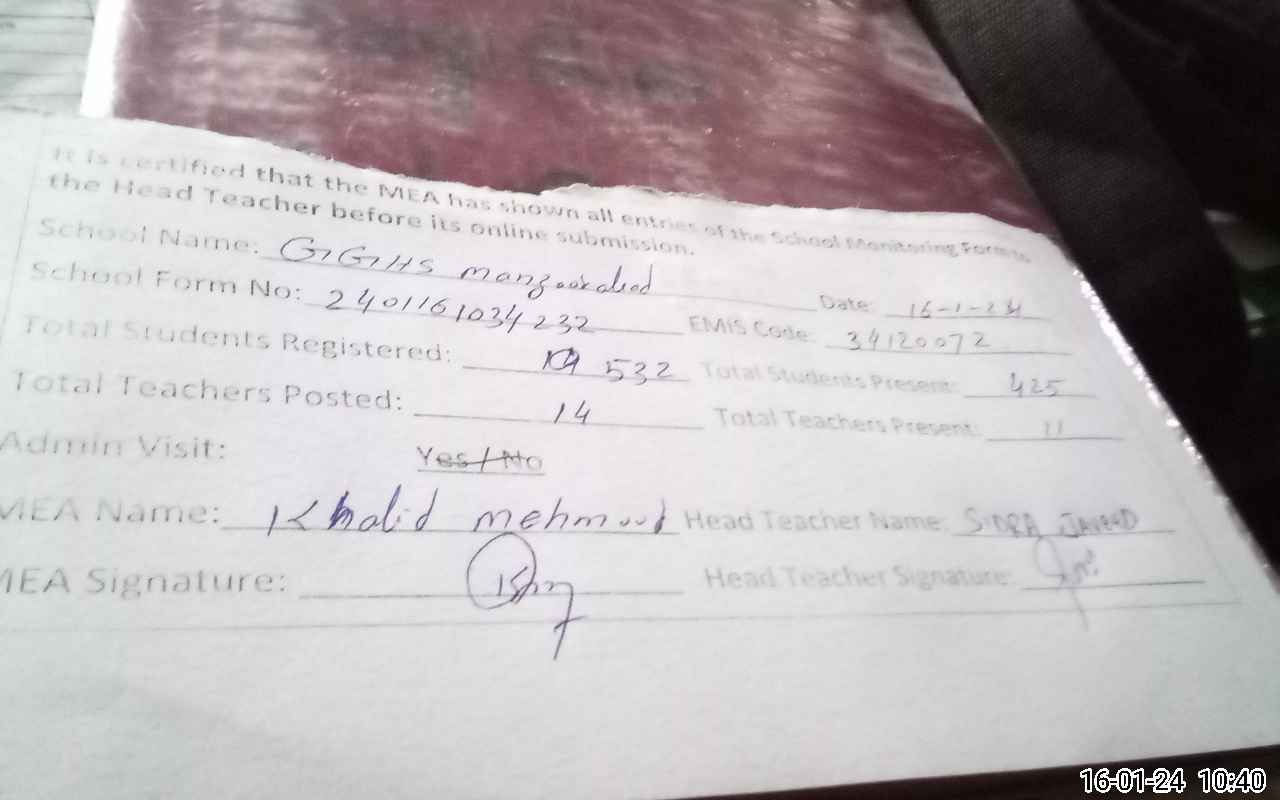 It is certified that the MEA has shown all entries of the School Monitoring Form to
the Head Teacher before its online submission.
School Name: GGHS manzoorabad Date: 16-1-24
School Form No: 2401161034232 EMIS Code: 34120072
Total Students Registered: 532 Total Students Present: 425
Total Teachers Posted: 14 Total Teachers Present: 11
Admin Visit: Yes / No
MEA Name: Khalid mehmood Head Teacher Name: SIDRA JAVAID
MEA Signature: Head Teacher Signature:
16-01-24 10:40